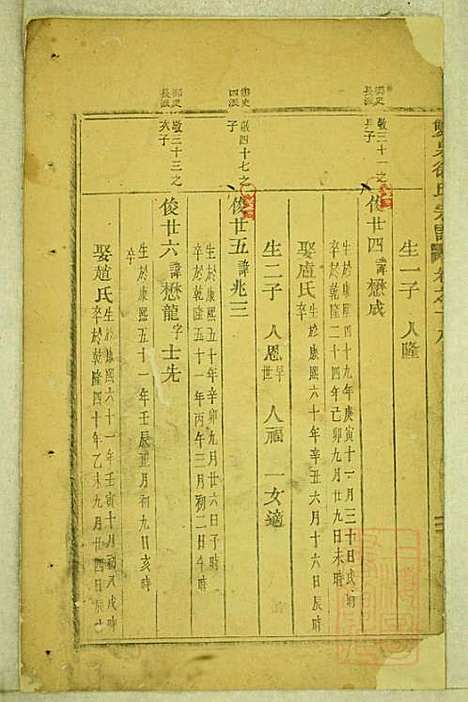 徐氏宗譜
生一子 人隆
御史
長派
敬三十一之
子
俊廿四 諱懋成
生於康熙四十九年庚寅十一月三十日戌時
卒於乾隆二十四年己卯九月廿九日未時
娶盧氏
生於康熙六十年辛丑六月十六日辰時
卒
生二子 人恩 早世 人福 一女適
御史
四派
敬四十七之
子
俊廿五 諱兆三
生於康熙五十年辛卯九月廿六日子時
卒於乾隆五十一年丙午三月初二日午時
御史
長派
敬三十三之
子
俊廿六 諱懋龍 字士先
生於康熙五十一年壬辰五月初九日亥時
卒
娶趙氏
生於康熙六十一年壬寅十月初六戌時
卒於乾隆四十年乙未九月廿四日辰